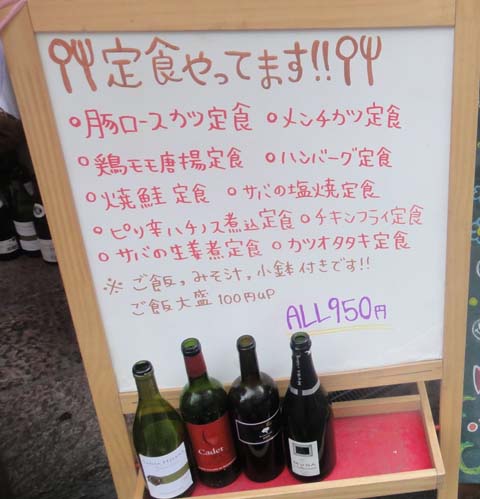 定食やってます!!
○豚ロースカツ定食 ○メンチカツ定食
○鶏モモ唐揚定食 ○ハンバーグ定食
○焼鮭定食 ○サバの塩焼定食
○ピリ辛ハチノス煮込定食 ○チキンフライ定食
○サバの生姜煮定食 ○カツオタタキ定食
※ご飯,みそ汁,小鉢付きです!!
ご飯大盛100円UP
ALL950円
Cadet